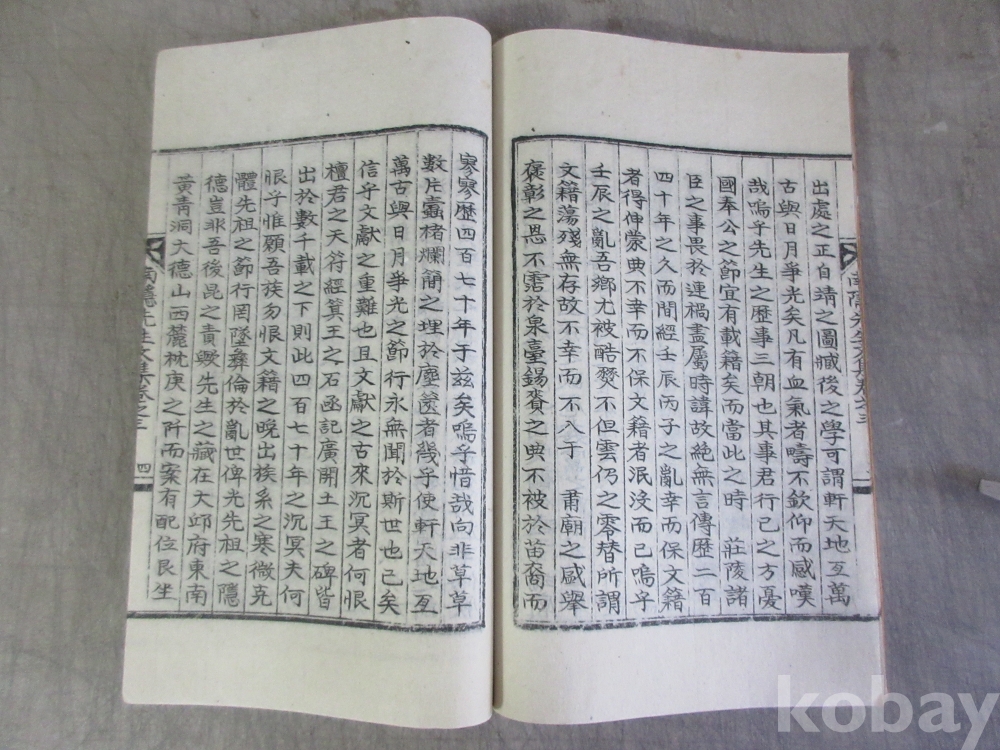 出處之正自靖之圖臧後之學可謂軒天地亙萬
古與日月爭光矣凡有血氣者疇不欽仰而感嘆
哉嗚乎先生之歷事三朝也其事君行己之方憂
國奉公之節宜有載籍矣而當此之時 莊陵諸
臣之事畏於連禍盡屬時諱故絶無言傳歷二百
四十年之久而間經壬辰丙子之亂幸而保文籍
者得伸蒙典不幸而不保文籍者泯沒而已嗚乎
壬辰之亂吾鄉尤被酷燹不但雲仍之零替所謂
文籍蕩殘無存故不幸而不入于 肅廟之盛舉
褒彰之恩不霑於泉臺錫賚之典不被於苗裔而
寥寥歷四百七十年于玆矣嗚乎惜哉向非草草
數片蠹楮爛簡之埋於塵篋者幾乎使軒天地亙
萬古與日月爭光之節行永無聞於斯世也已矣
信乎文獻之重難也且文獻之古來沉冥者何恨
檀君之天符經箕王之石函記廣開土王之碑皆
出於數千載之下則此四百七十年之沉冥夫何
恨乎惟願吾族勿恨文籍之晚出族系之寒微克
體先祖之節行罔墜彛倫於亂世俾光先祖之隱
德豈非吾後昆之責歟先生之藏在大邱府東南
黃青洞大德山西麓枕庚之阡而案有配位艮坐
先生文集卷之三
四
kobay